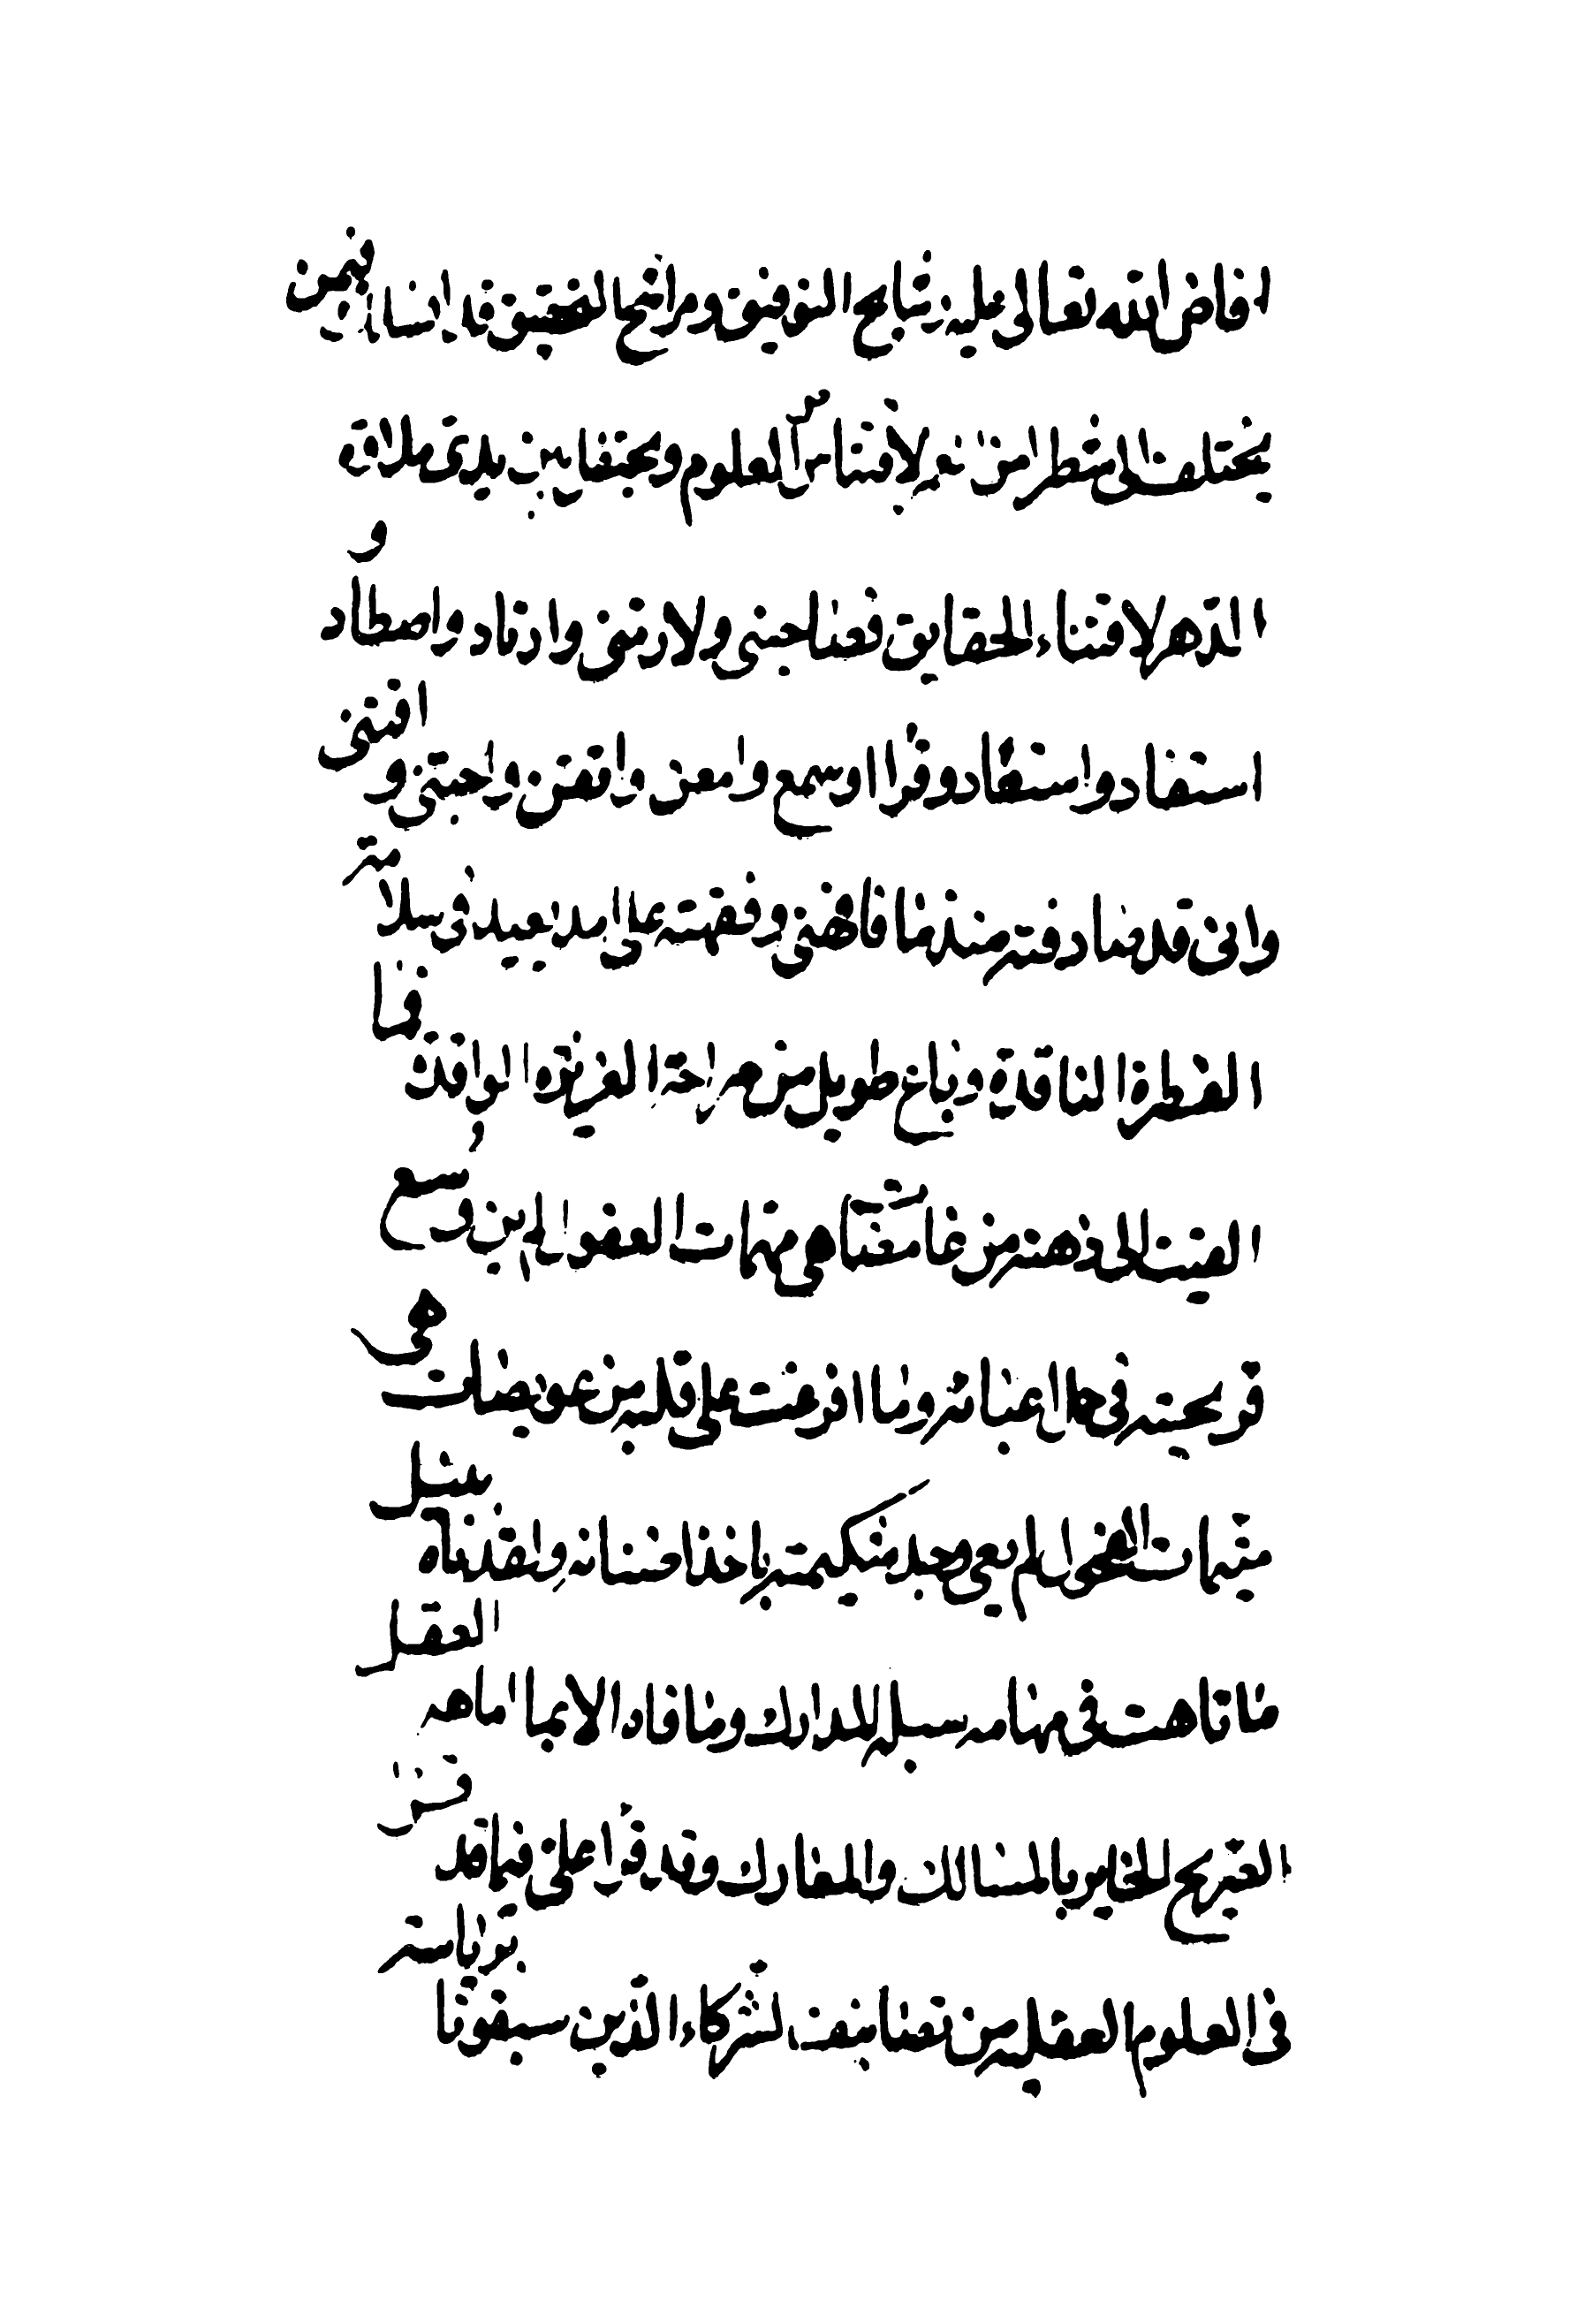 افاض الله تعالى عليه رشايح التوفيق ومراشح التحقيق قد انسا فيمن
يختلف الى شطرا من لاقتناس العلوم ويحتفا بين يدى ملاقة
الدهر لاقتناء الحقايق فصاحبنى ولازمنى وارتاد واصطاد و
استفاد واستعاد وقرا وسمع وامعن واتقن واجتنى و اقتنى
وانى قد صادفته منذ ما فاهنى وفقهته على امد بعيد فى سلامة
الفطرة الناقدة وباع طويل من صراحة الغريزة الواقدة فما
القيت الى ذهنه من غامضتا هى مهمات العضوالم ين وسع
قريحته فى حمل اعبائه وما افرغت على قلبه من عويصات هى
متيهات الفحوالم يعى وجد شكيمته باخذ افنانه وانقدناه سبيل
ما تاهت فى مهامه سبله المدارك وما فاد الا بما ما هه العقل
القريح الخابر بالمسالك والمعارك وقد قرا على فيما قد قرا
فى العلوم العقلية من تصانيف الشركاء الذين سبقونا برياسة